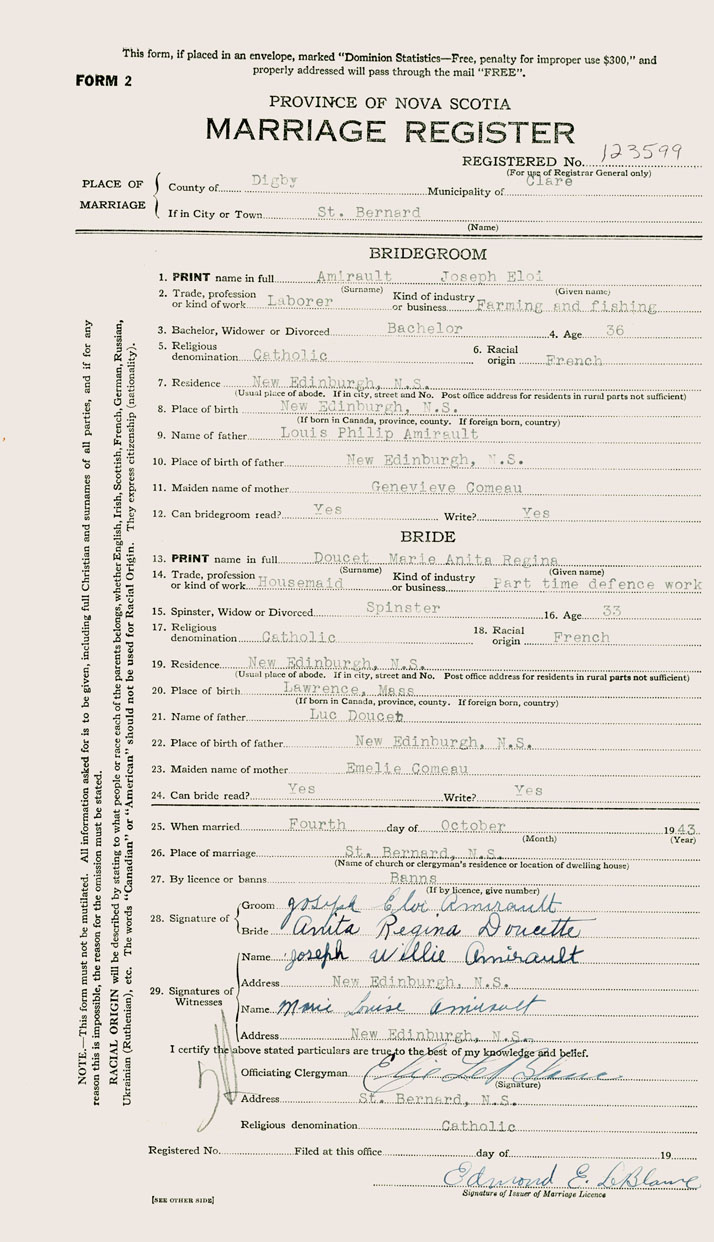 This form, if placed in an envelope, marked "Dominion Statistics—Free, penalty for improper use $300," and
properly addressed will pass through the mail "FREE".
FORM 2
PROVINCE OF NOVA SCOTIA
MARRIAGE REGISTER
REGISTERED No. 123599
(For use of Registrar General only)
PLACE OF MARRIAGE
County of Digby Municipality of Clare
If in City or Town St. Bernard
(Name)
BRIDEGROOM
1. PRINT name in full Amirault Joseph Eloi
(Surname) (Given name)
2. Trade, profession or kind of work Laborer Kind of industry or business Farming and fishing
3. Bachelor, Widower or Divorced Bachelor 4. Age 36
5. Religious denomination Catholic 6. Racial origin French
7. Residence New Edinburgh, N.S.
(Usual place of abode. If in city, street and No. Post office address for residents in rural parts not sufficient)
8. Place of birth New Edinburgh, N.S.
(If born in Canada, province, county. If foreign born, country)
9. Name of father Louis Philip Amirault
10. Place of birth of father New Edinburgh, N.S.
11. Maiden name of mother Genevieve Comeau
12. Can bridegroom read? Yes Write? Yes
BRIDE
13. PRINT name in full Doucet Marie Anita Regina
(Surname) (Given name)
14. Trade, profession or kind of work Housemaid Kind of industry or business Part time defence work
15. Spinster, Widow or Divorced Spinster 16. Age 33
17. Religious denomination Catholic 18. Racial origin French
19. Residence New Edinburgh, N.S.
(Usual place of abode. If in city, street and No. Post office address for residents in rural parts not sufficient)
20. Place of birth Lawrence, Mass
(If born in Canada, province, county. If foreign born, country)
21. Name of father Luc Doucet
22. Place of birth of father New Edinburgh, N.S.
23. Maiden name of mother Emelie Comeau
24. Can bride read? Yes Write? Yes
25. When married Fourth day of October 1943
(Month) (Year)
26. Place of marriage St. Bernard, N.S.
(Name of church or clergyman's residence or location of dwelling house)
27. By licence or banns Banns
(If by licence, give number)
28. Signature of
Groom Joseph Eloi Amirault
Bride Anita Regina Doucette
29. Signatures of Witnesses
Name Joseph Willie Amirault
Address New Edinburgh, N.S.
Name Marie Louise Amirault
Address New Edinburgh, N.S.
I certify the above stated particulars are true to the best of my knowledge and belief.
Officiating Clergyman Elie LeBlanc
(Signature)
Address St. Bernard, N.S.
Religious denomination Catholic
Registered No. Filed at this office day of 19
Edmond E. LeBlanc
Signature of Issuer of Marriage Licence
[SEE OTHER SIDE]
NOTE.—This form must not be mutilated. All information asked for is to be given, including full Christian and surnames of all parties, and if for any
reason this is impossible, the reason for the omission must be stated.
RACIAL ORIGIN will be described by stating to what people or race each of the parents belongs, whether English, Irish, Scottish, French, German, Russian,
Ukrainian (Ruthenian), etc. The words "Canadian" or "American" should not be used for Racial Origin. They express citizenship (nationality).